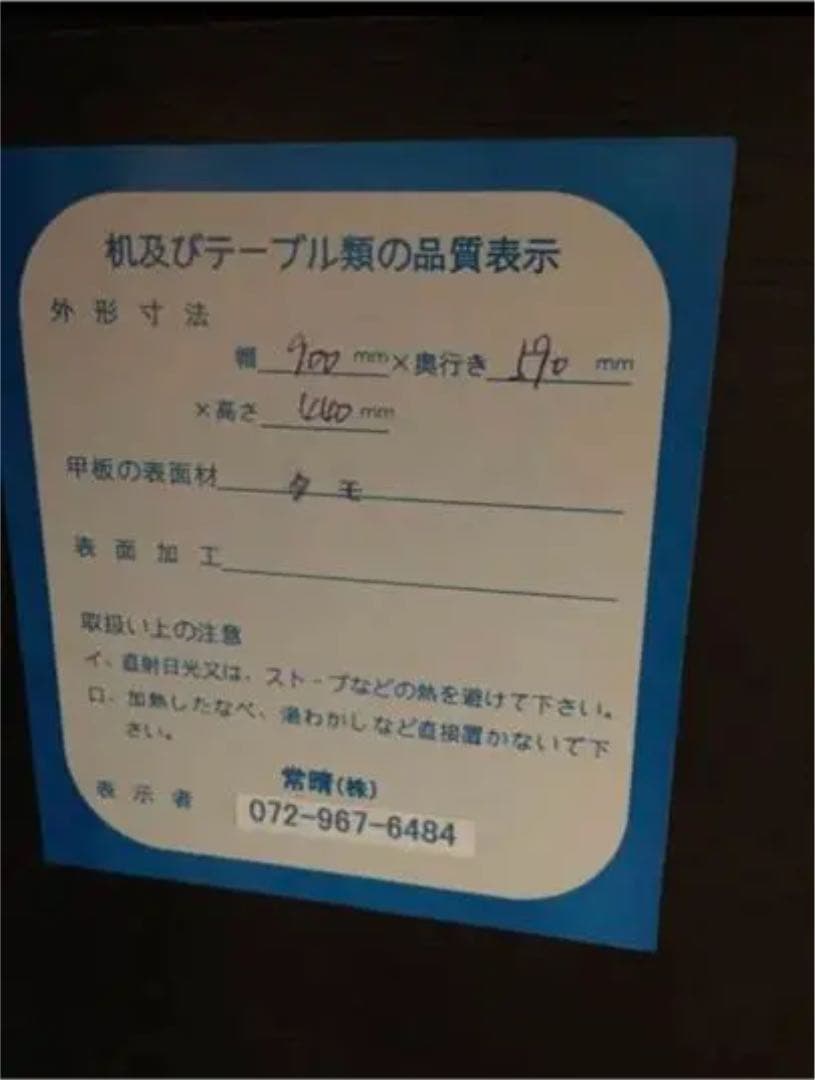 机及びテーブル類の品質表示
外形寸法
幅 900 mm×奥行き 590 mm
×高さ 440 mm
甲板の表面材 タモ
表面加工
取扱い上の注意
イ、直射日光又は、ストーブなどの熱を避けて下さい。
ロ、加熱したなべ、湯わかしなど直接置かないで下
さい。
常晴(株)
表示者 072-967-6484